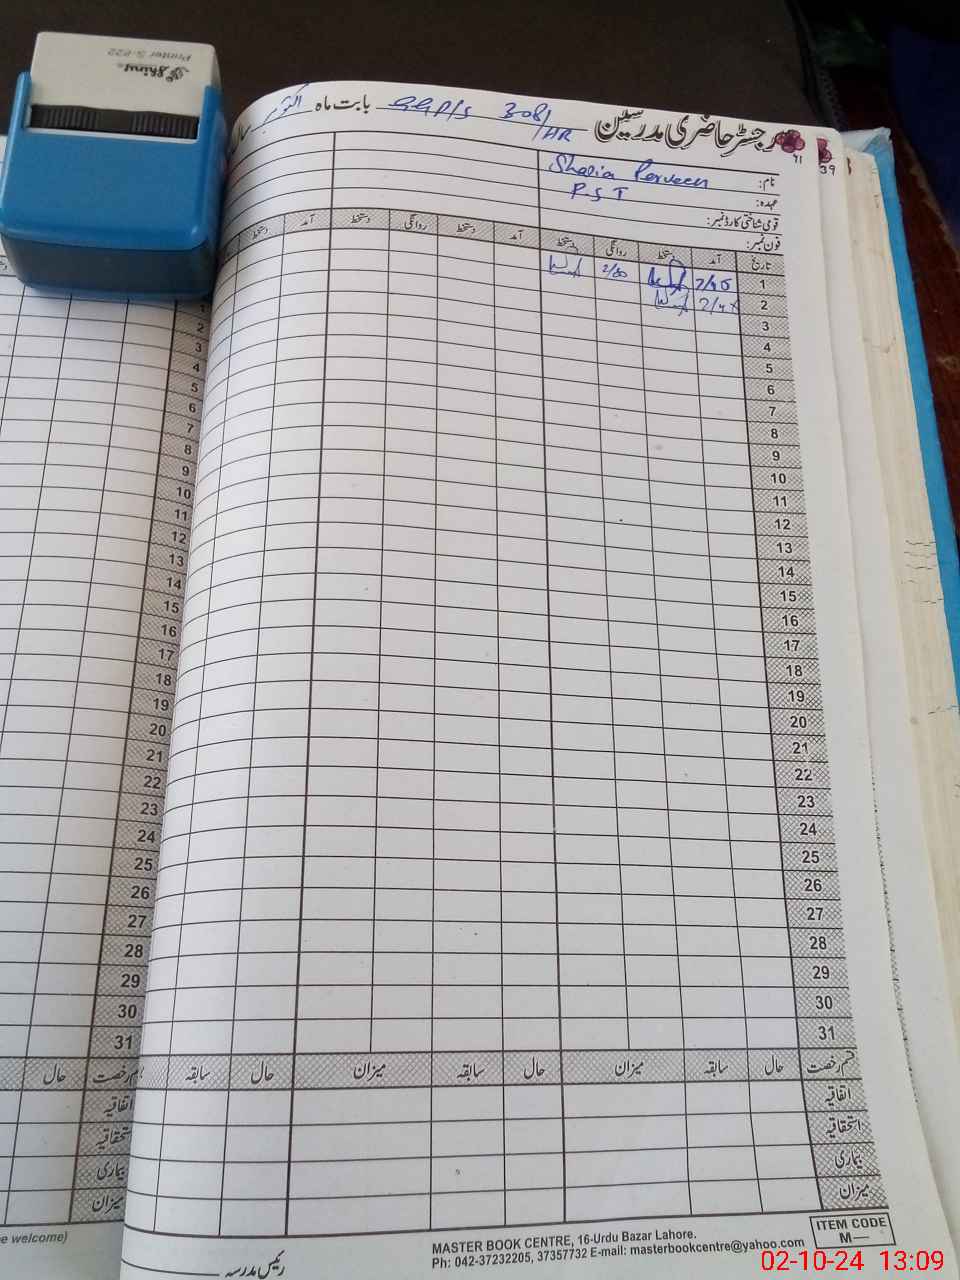 Shiny
Printer S-822
رجسٹر حاضری مدرسین GGP/S 308/HR بابت ماہ اکتوبر
91
39
نام: Shazia Perveen
عہدہ: P.S.T
قومی شناختی کارڈ نمبر:
فون نمبر:
تاریخ آمد دستخط روانگی دستخط آمد دستخط روانگی دستخط آمد دستخط
1 7/45
2
3
4
5
6
7
8
9
10
11
12
13
14
15
16
17
18
19
20
21
22
23
24
25
26
27
28
29
30
31
قسم رخصت حال سابقہ میزان حال سابقہ میزان حال سابقہ
اتفاقیہ
استحقاقیہ
بیماری
میزان
رئیس مدرسہ
MASTER BOOK CENTRE, 16-Urdu Bazar Lahore.
Ph: 042-37232205, 37357732 E-mail: masterbookcentre@yahoo.com
ITEM CODE
M—
1
2
3
4
5
6
7
8
9
10
11
12
13
14
15
16
17
18
19
20
21
22
23
24
25
26
27
28
29
30
31
حال
اتفاقیہ
بیماری
میزان
e welcome)
02-10-24 13:09